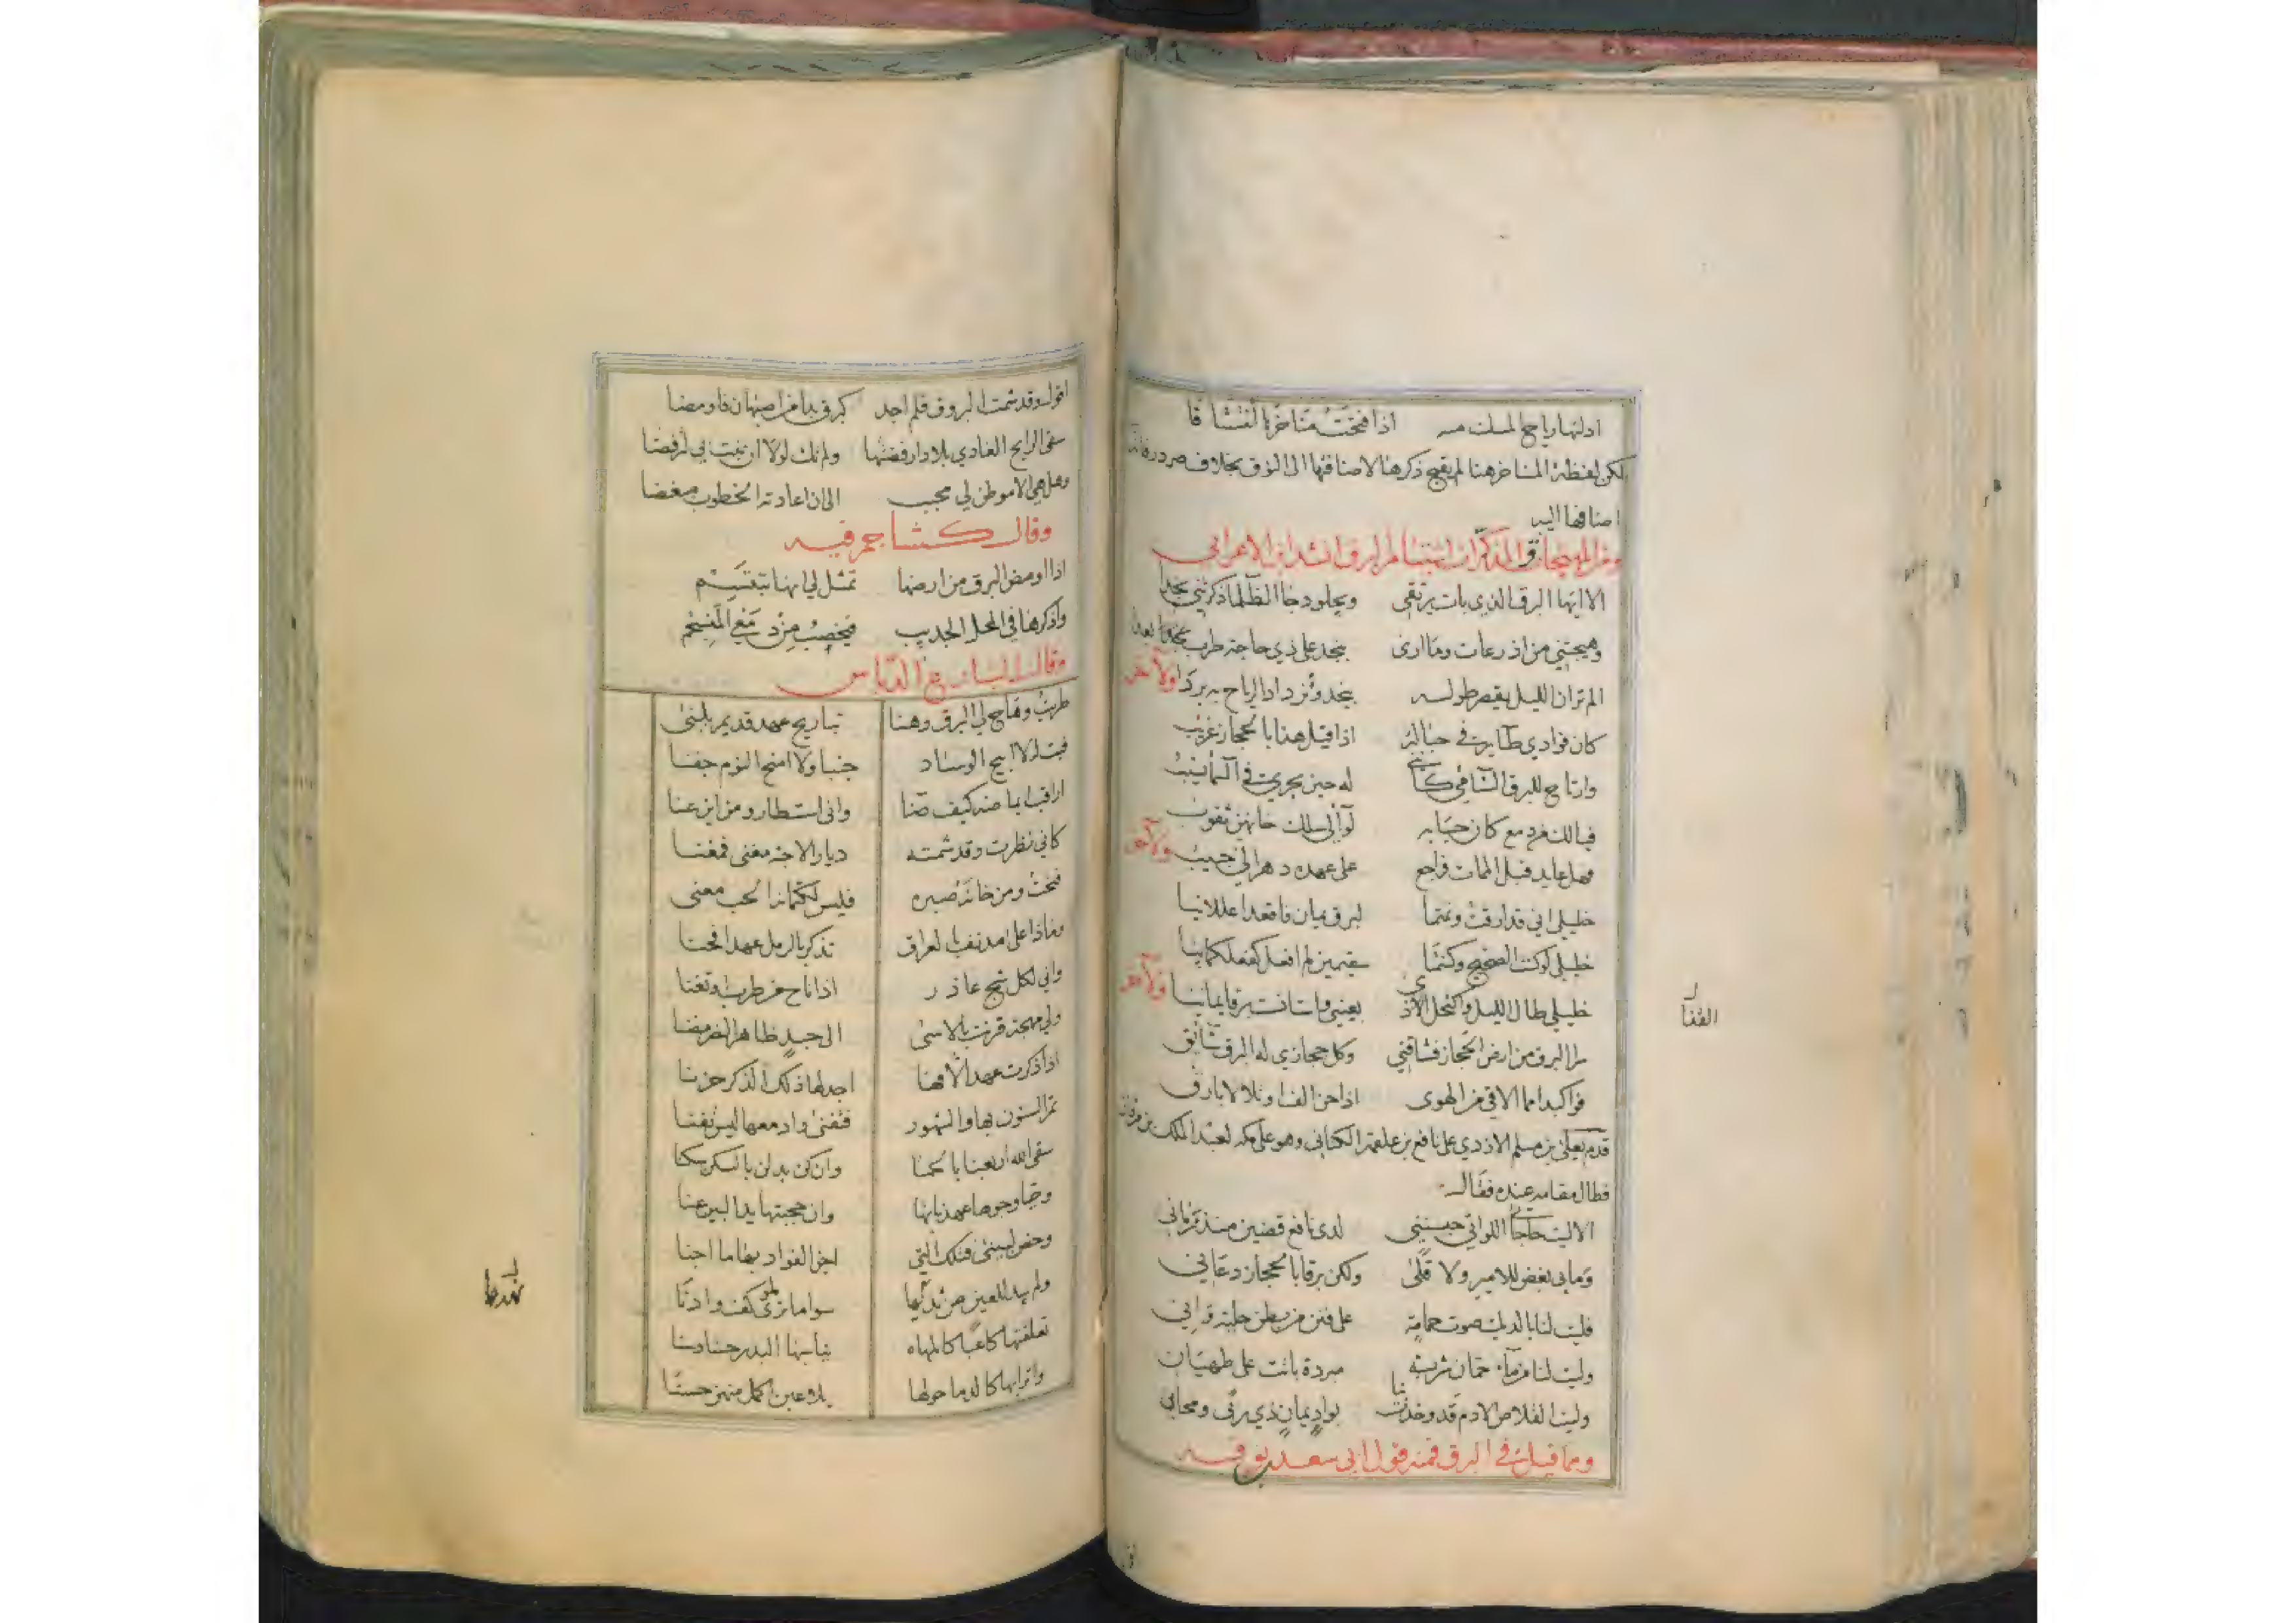 ادلتها رياح المسك منه اذا فتحت مناخرها انتشاقا
لكن لفظة المناخر هنا لم يقبح ذكرها لاضافتها الى الزق بخلاف صردر فانه
اضافها اليه
ومن المهيجات والمذكرات استبشام البرق انشد ابن الاعرابي
الا ايها البرق الذي بات يرتقي ويجلو دجا الظلما ذكرتني نجدا
وهيجتني من اذرعات وما ارى بنجد على ذي حاجة طرب بعدا
الم تر ان الليل يقصر طوله بنجد وتزداد الرياح به بردا ولآخر
كان فؤادي طاير في حباله اذا قيل هذا بالحجاز غريب
وارتاح للبرق الشآمي كأنني له حين يجري في السماء نسيب
فيالك من دمع كان حبابه لوآلي سلك خانهن ثقوب
وهل عايد قبل الممات فراجع على عهده دهر الي حبيب ولآخر
خليلي اني قد ارقت ونمتما لبرق يمان فاقعدا عللانيا
خليلي لو كنت الصحيح وكنتما سقيمين لم افعل كفعلكما بيا
خليلي طال الليل واكتحل الاذى بعيني واستانست برقا يمانيا ولآخر
سرا البرق من ارض الحجاز فشاقني وكل حجازي له البرق شائق
فواكبدا مما الاقي من الهوى اذا حن الف او تلالا بارق
قدم يعلى بن مسلم الازدي على نافع بن علقمة الكناني وهو على مكة لعبد الملك بن مروان
فطال مقامه عنده فقال
الا ليت حاجاتي اللواتي حبسنني لدى نافع قضين منذ زماني
وما بي بغض للامير ولا قلى ولكن برقا بالحجاز دعاني
فليت لنا بالديك صوت حمامة على فنن من بطن حلية
وليت لنا من ماء حمان شربة مبردة باتت على طهيان
وليت القلاص الادم قد وخدت بنا بواد يمان ذي ربى ومحاني
ومما قيل في البرق فمنه قول ابي سعد بوقه
القنا
اقول وقد شمت البروق فلم اجد كبرق بدا من اصبهان فاومضا
سقى الرايح الغادي بلادا رفضتها ولم تك لولا ان نبت بي لترفضا
وهل هي الا موطن لي محبب الى ان اعادته الخطوب مبغضا
وقال كشاجم فيه
اذا اومض البرق من ارضها تمثل لي انها تبتسم
واذكرها في المحل الجديب فيخصب من دمعي المنسجم
وقال البارع الدباس
طربت وهاج لي البرق وهنا تباريح عهد قديم بلبنى
فبت لا ابيح الوساد جنبا ولا امنح النوم جفنا
اراقب ايماضه كيف ضنا وانى استطار ومن اين عنا
كاني نظرت وقد شمته ديار الاحبة مغنى فمغنا
فبحت ومن خانه صبره فليس لكتمانه الحب معنى
وماذا على مدنف بالعراق تذكر بالرمل عهدا فحنا
واني لكل شج عاذر اذا ناح من طرب او تغنا
ولي مهجة قرنت بالاسى الى جسد ظاهر الضر مضنا
اذا ذكرت عهد الافها اجد لها ذلك الذكر حزنا
تمر السنون بها والشهور فتفنى وادمعها ليس تفنا
سقى الله اربعنا بالحمى وان كن بدلن بالسكن سكنا
وحيا وجوها عهدنا بها وان حجبتها يد البين عنا
وخص لبينى فتلك التي اجن الفؤاد بها ما اجنا
ولم يبد للعين من ثديها سوا ما ترى كفه او ادنا
تعلقتها كاعبا كالمهاه تناسبها البدر حسنا وسنا
واترابها كالدما حولها يلاعبن اكمل منهن حسنا
نهدها